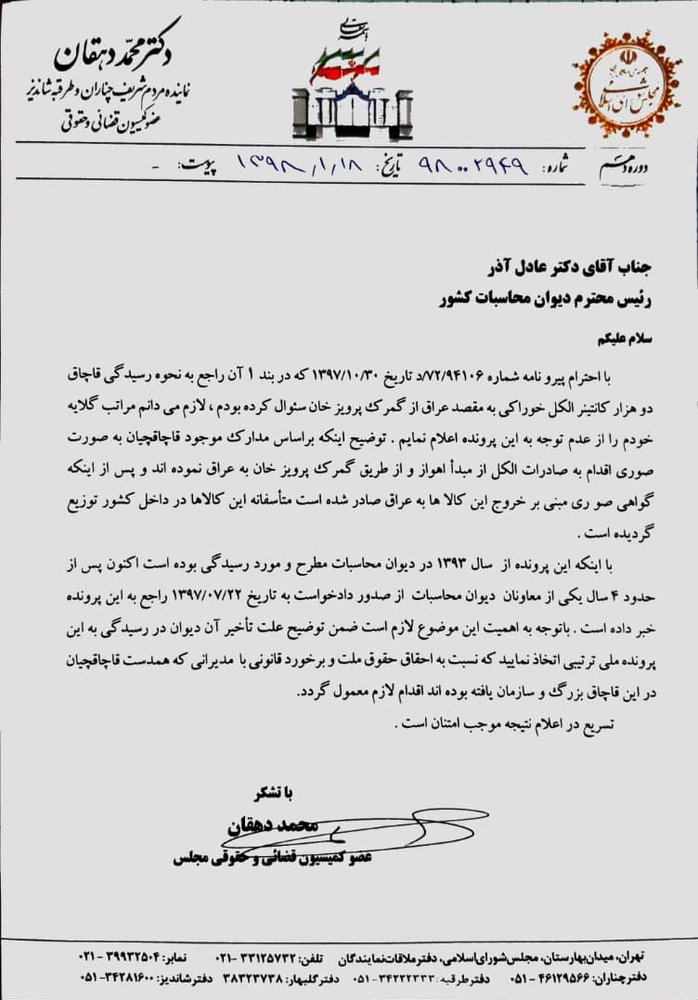 دکتر محمّد دهقان
نماینده مردم شریف چناران و طرقبه شاندیز
عضو کمیسیون قضائی و حقوقی
مجلس شورای اسلامی
دوره دهم
شماره: ۹۸۰۰۲۹۴۹ تاریخ: ۱۳۹۸/۱/۱۸ پیوست: -
جناب آقای دکتر عادل آذر
رئیس محترم دیوان محاسبات کشور
سلام علیکم
با احترام پیرو نامه شماره ۷۲/۹۴۱۰۶/د تاریخ ۱۳۹۷/۱۰/۳۰ که در بند ۱ آن راجع به نحوه رسیدگی قاچاق
دو هزار کانتینر الکل خوراکی به مقصد عراق از گمرک پرویز خان سئوال کرده بودم ، لازم می دانم مراتب گلایه
خودم را از عدم توجه به این پرونده اعلام نمایم . توضیح اینکه براساس مدارک موجود قاچاقچیان به صورت
صوری اقدام به صادرات الکل از مبدأ اهواز و از طریق گمرک پرویز خان به عراق نموده اند و پس از اینکه
گواهی صو ری مبنی بر خروج این کالا ها به عراق صادر شده است متأسفانه این کالاها در داخل کشور توزیع
گردیده است .
با اینکه این پرونده از سال ۱۳۹۳ در دیوان محاسبات مطرح و مورد رسیدگی بوده است اکنون پس از
حدود ۴ سال یکی از معاونان دیوان محاسبات از صدور دادخواست به تاریخ ۱۳۹۷/۰۷/۲۲ راجع به این پرونده
خبر داده است . باتوجه به اهمیت این موضوع لازم است ضمن توضیح علت تأخیر آن دیوان در رسیدگی به این
پرونده ملی ترتیبی اتخاذ نمایید که نسبت به احقاق حقوق ملت و برخورد قانونی با مدیرانی که همدست قاچاقچیان
در این قاچاق بزرگ و سازمان یافته بوده اند اقدام لازم معمول گردد.
تسریع در اعلام نتیجه موجب امتنان است .
با تشکر
محمد دهقان
عضو کمیسیون قضائی و حقوقی مجلس
تهران، میدان بهارستان، مجلس شورای اسلامی، دفتر ملاقات نمایندگان تلفن: ۳۳۱۲۵۷۳۲ -۰۲۱ نمابر: ۳۹۹۳۲۵۰۴ -۰۲۱
دفتر چناران: ۴۶۱۲۹۵۶۶ -۰۵۱ دفتر طرقبه: ۳۴۲۲۲۳۳۳-۰۵۱ دفتر گلبهار: ۳۸۳۲۳۷۳۸ دفتر شاندیز: ۳۴۲۸۱۶۰۰-۰۵۱